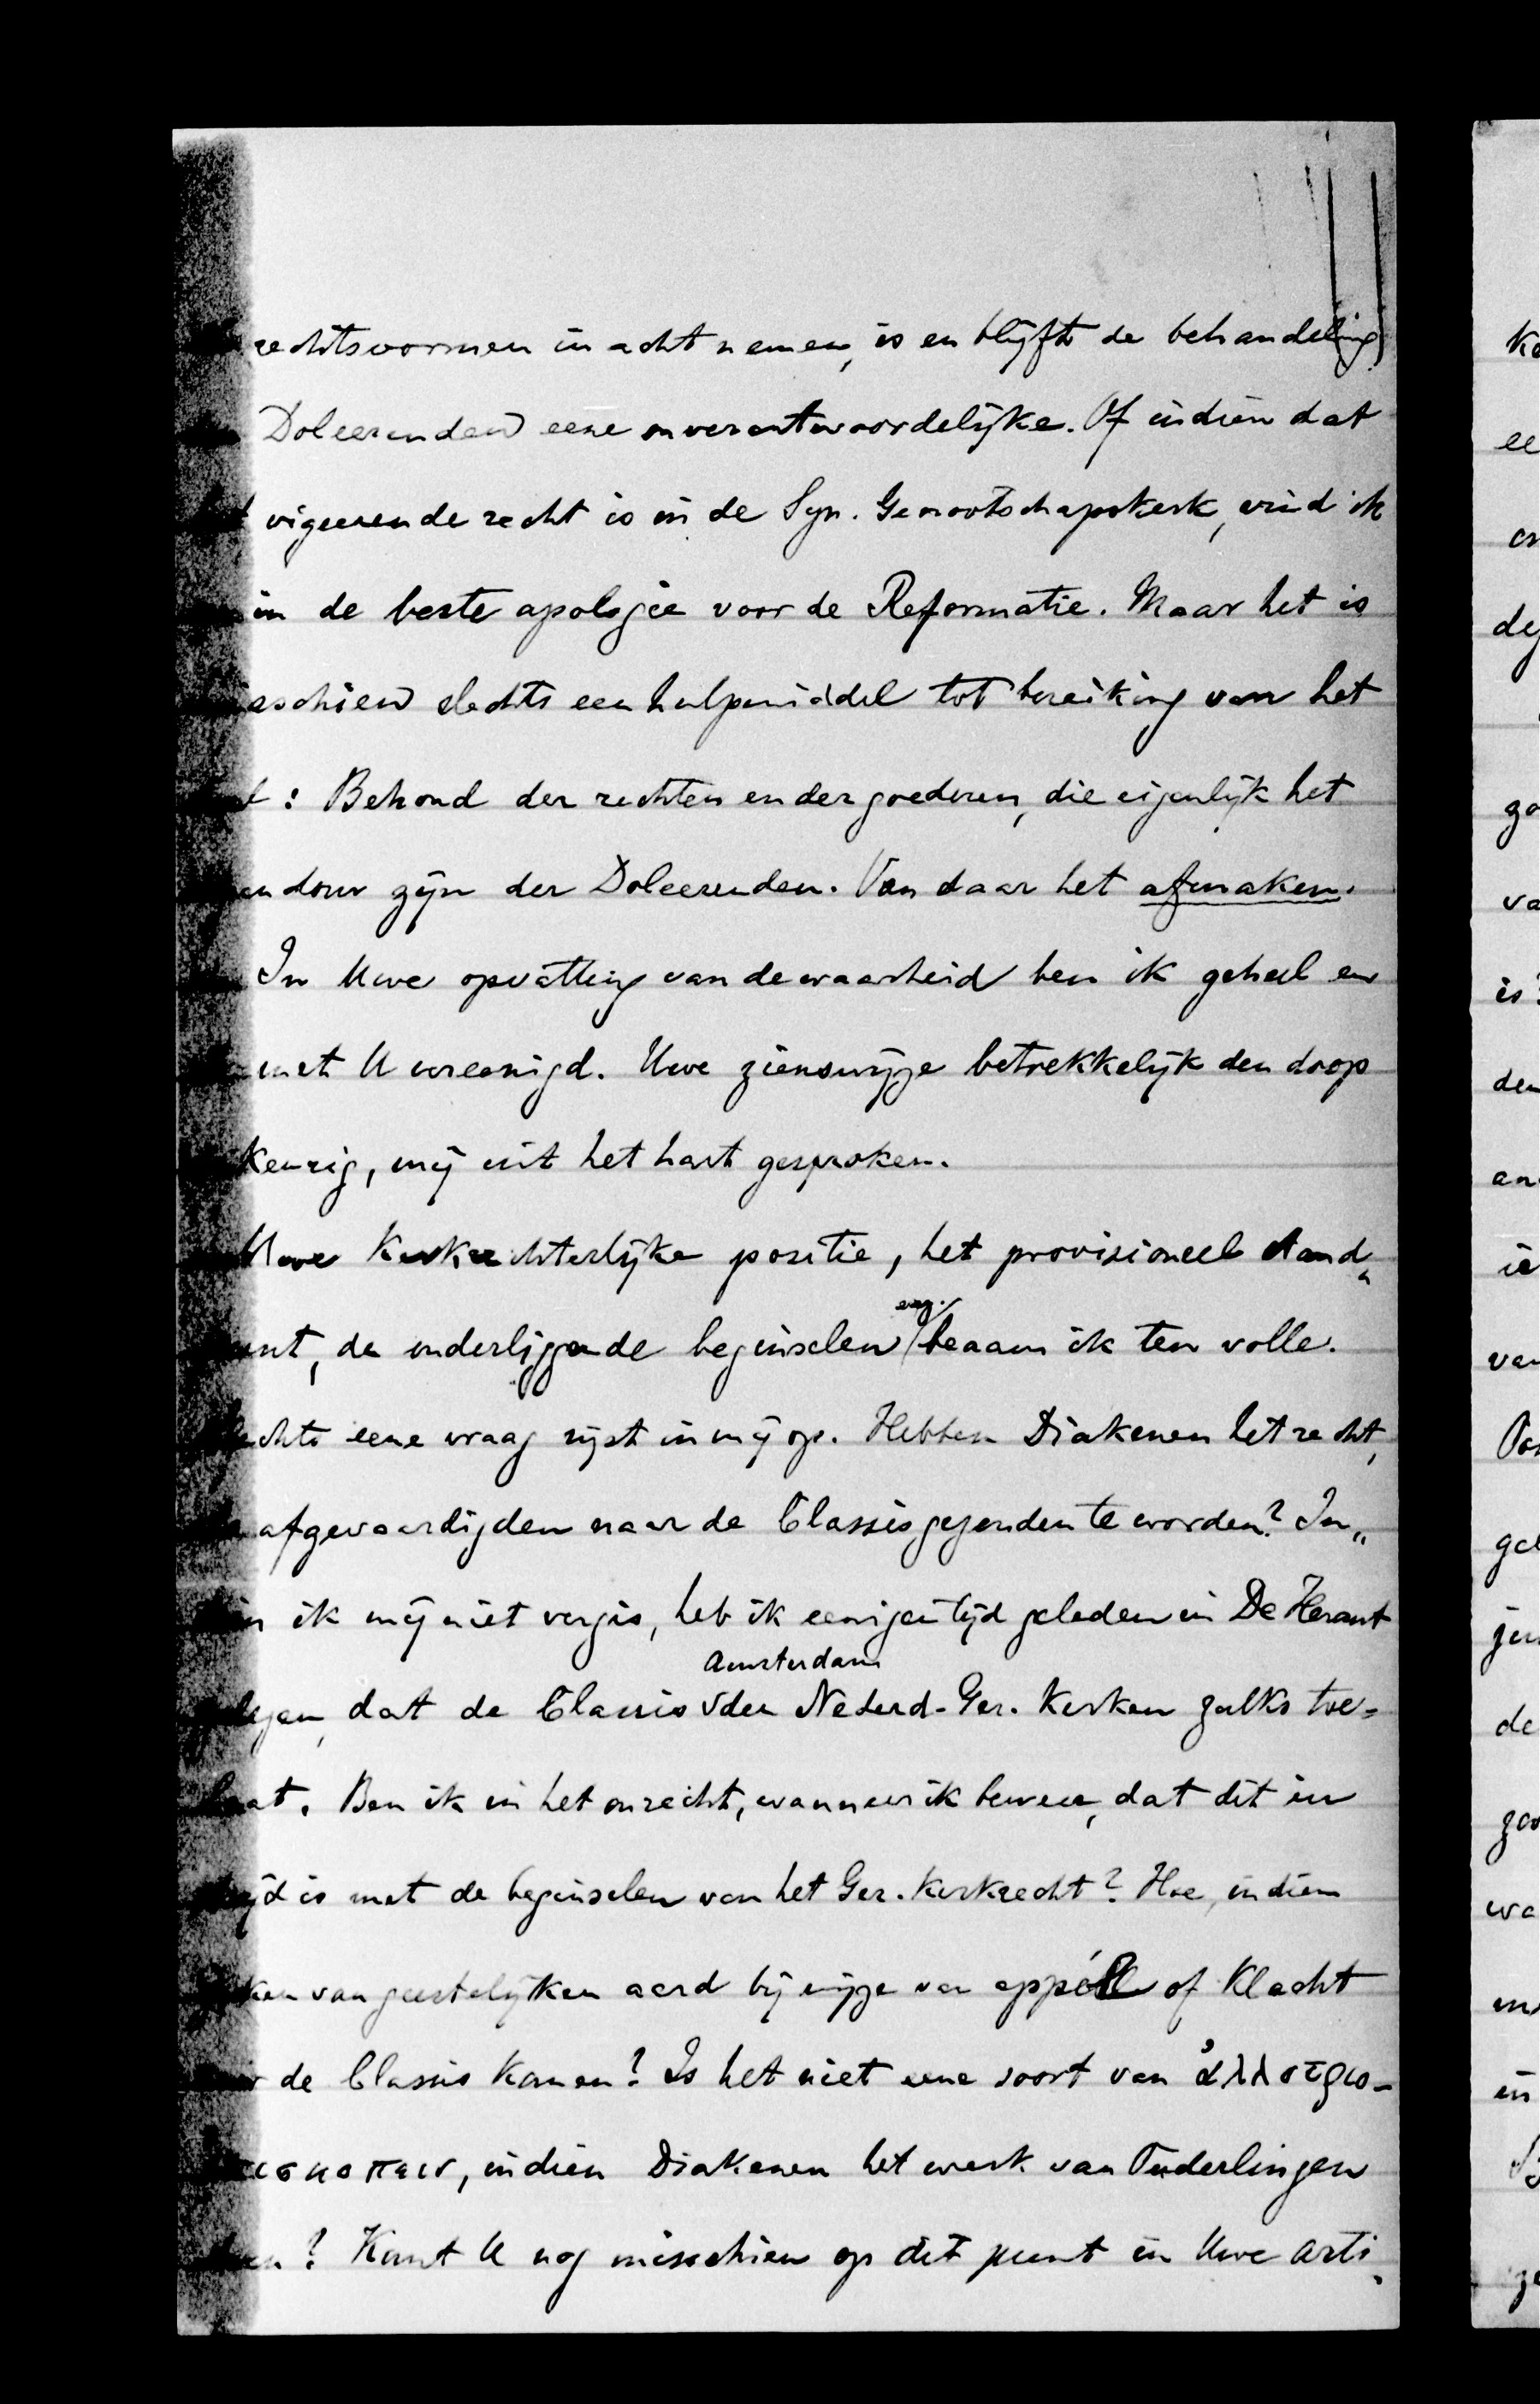 rechtsvormen in acht nemen, is en blijft de behandeling
Doleerenden eene onverantwoordelijke. Of indien dat
vigeerende recht is in de Syn. Genootschapskerk, vind ik
in de beste apologie voor de Reformatie. Maar het is
sschien slechts een hulpmiddel tot bereiking van het
l: Behoud der rechten en der goederen, die eigenlijk het
endom zijn der Doleerenden. Van daar het afmaken.
In Uwe opvatting van de waarheid ben ik geheel en
met U vereenigd. Uwe zienswijze betrekkelijk den doop
keurig, mij uit het hart gesproken.
Uwe Kerkrechterlijke positie, het provisioneel stand„
unt, de onderliggende beginselen enz. beaam ik ten volle.
lechts eene vraag rijst in mij op. Hebben Diakenen het recht,
afgevaardigden naar de Classis gezonden te worden? In„
n ik mij niet vergis, heb ik eenigen tijd geleden in De Heraut
Amsterdam
lezen, dat de Classis √ der Nederd-Ger. Kerken zulks toe=
laat. Ben ik in het onrecht, wanneer ik beweer, dat dit in
ijd is met de beginselen van het Ger. Kerkrecht? Hoe, indien
ken van geestelijken aard bij wijze van appèl of Klacht
r de Classis komen? Is het niet eene soort van ἀλλοτριο-
ισκοπειν, indien Diakenen het werk van Ouderlingen
en? Kunt U nog misschien op dit punt in Uwe arti„